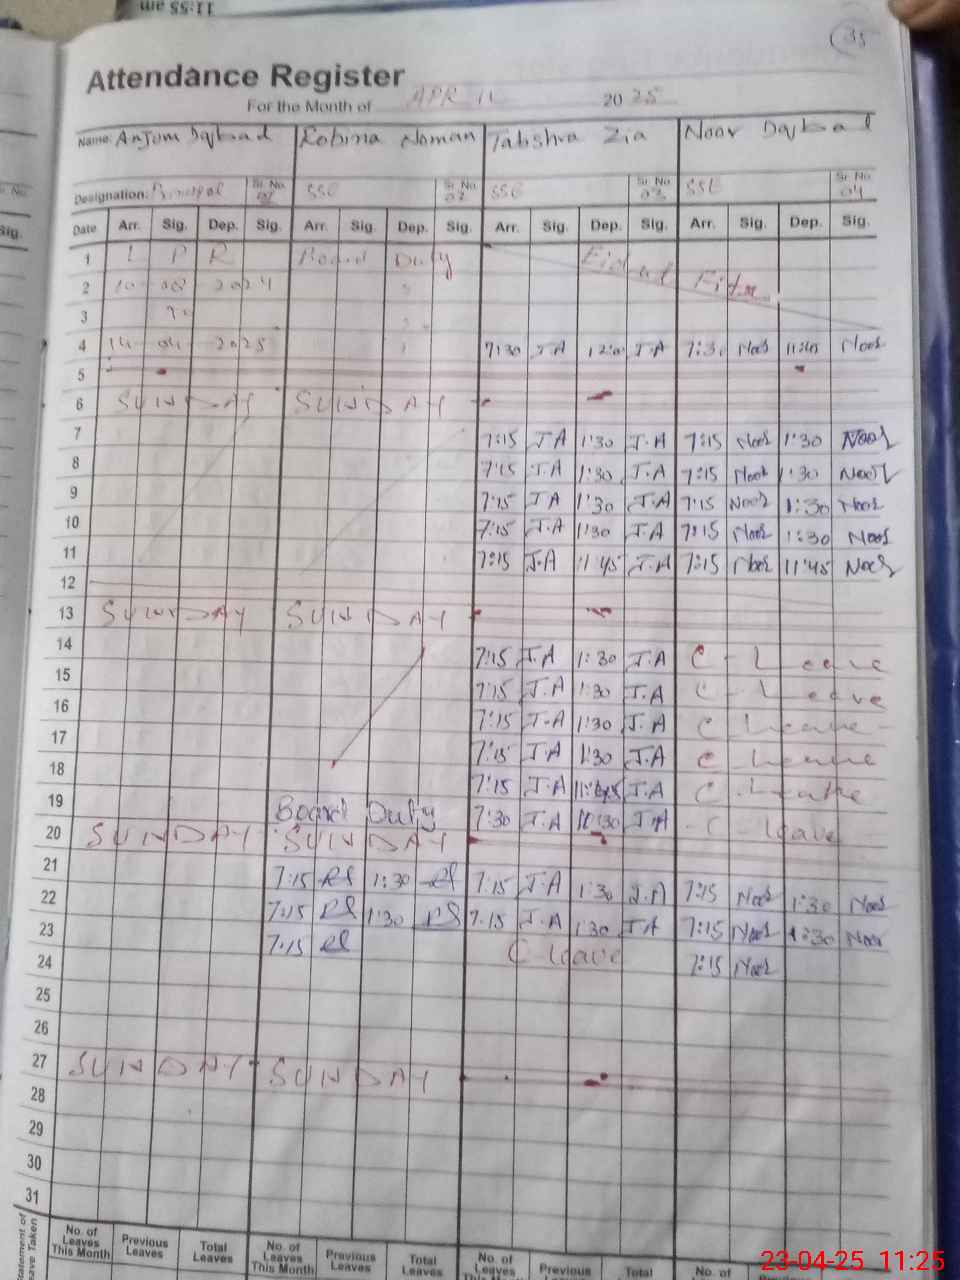 11:55 am
35
Attendance Register
For the Month of APRIL 2025
Name: Anjum Iqbal Robina Noman Tabishra Zia Noor Iqbal
Designation: Principal Sr. No. 01 SSE Sr. No. 02 SSE Sr. No. 03 SSE Sr. No. 04
Date Arr. Sig. Dep. Sig. Arr. Sig. Dep. Sig. Arr. Sig. Dep. Sig. Arr. Sig. Dep. Sig.
1 L P R Board Duty Eid ul Fitr
2 2024
3
4 14 04 2025 7:30 J.A 12:00 J.A 7:30 Noor 11:45 Noor
5
6 SUNDAY SUNDAY
7 7:15 J.A 1:30 J.A 7:15 Noor 1:30 Noor
8 7:15 J.A 1:30 J.A 7:15 Noor 1:30 Noor
9 7:15 J.A 1:30 J.A 7:15 Noor 1:30 Noor
10 7:15 J.A 1:30 J.A 7:15 Noor 1:30 Noor
11 7:15 J.A 11:45 J.A 7:15 Noor 11:45 Noor
12
13 SUNDAY SUNDAY
14 7:15 J.A 1:30 J.A C-Leave
15 7:15 J.A 1:30 J.A C-Leave
16 7:15 J.A 1:30 J.A C-Leave
17 7:15 J.A 1:30 J.A C-Leave
18 7:15 J.A 11:45 J.A C-Leave
19 Board Duty 7:30 J.A J.A C-leave
20 SUNDAY SUNDAY
21 7:15 RS 1:30 RS 7:15 J.A 1:30 J.A 7:15 Noor 1:30 Noor
22 7:15 RS 1:30 RS 7:15 J.A 1:30 J.A 7:15 Noor 1:30 Noor
23 7:15 RS C-leave 7:15 Noor
24
25
26
27 SUNDAY SUNDAY
28
29
30
31
Statement of Leave Taken
No. of Leaves This Month Previous Leaves Total Leaves No. of Leaves This Month Previous Leaves Total Leaves No. of Leaves Previous Total No. of Previous
23-04-25 11:25